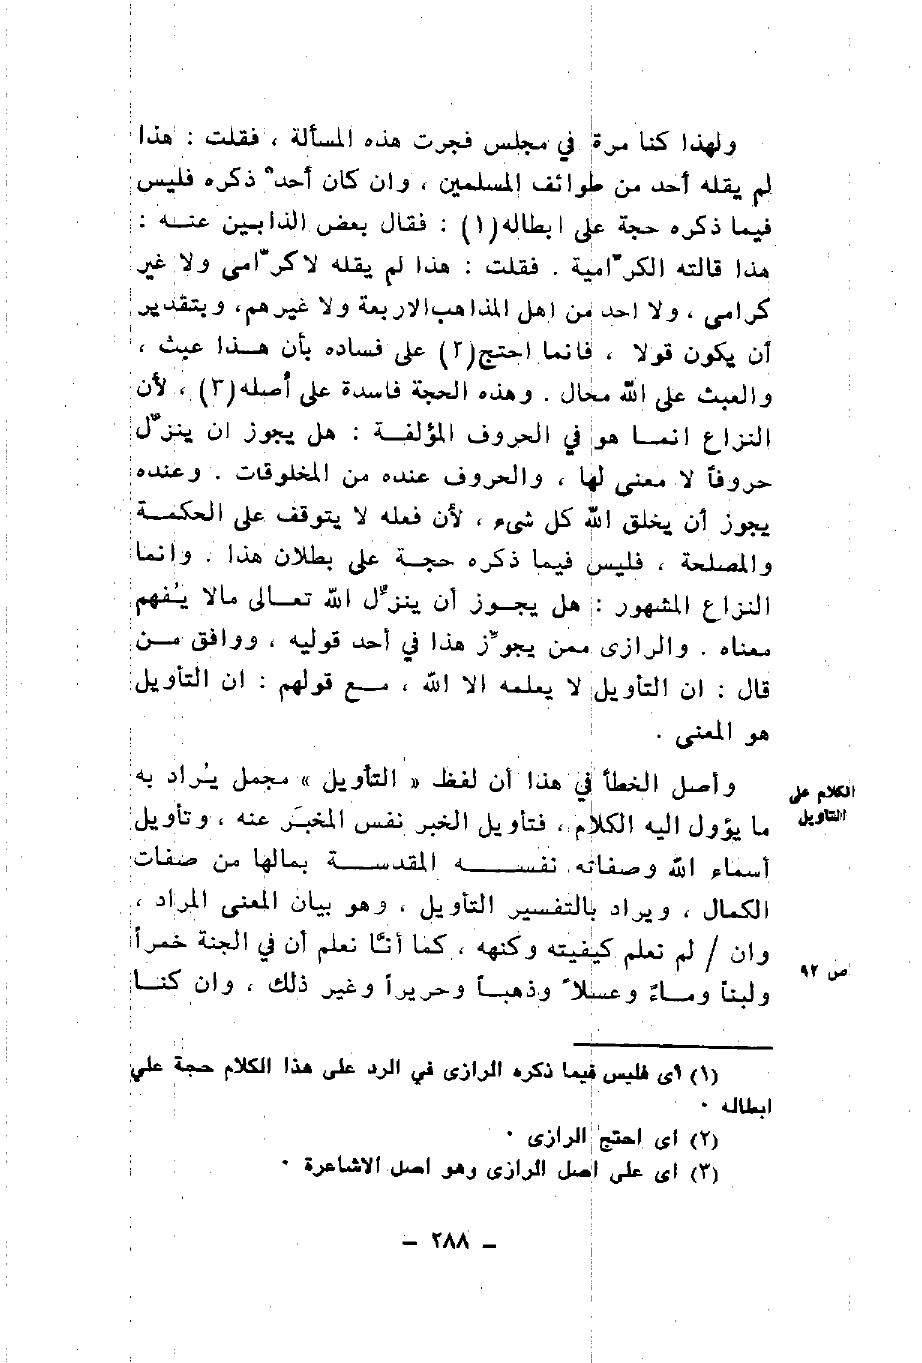 ولهذا كنا مرة في مجلس فجرت هذه المسألة ، فقلت : هذا
لم يقله أحد من طوائف المسلمين ، وان كان أحدٌ ذكره فليس
فيما ذكره حجة على ابطاله(١) : فقال بعض الذابين عنـــه :
هذا قالته الكرّامية . فقلت : هذا لم يقله لاكرّامى ولا غير
كرامى ، ولا احد من اهل المذاهب الاربعة ولا غيرهم، وبتقدير
أن يكون قولا ، فانما احتج(٢) على فساده بأن هــذا عبث ،
والعبث على الله محال . وهذه الحجة فاسدة على أصله(٣) ، لأن
النزاع انمــا هو في الحروف المؤلفــة : هل يجوز ان ينزّل
حروفاً لا معنى لها ، والحروف عنده من المخلوقات . وعنده
يجوز أن يخلق الله كل شىء ، لأن فعله لا يتوقف على الحكمــة
والمصلحة ، فليس فيما ذكره حجــة على بطلان هذا . وانما
النزاع المشهور : هل يجــوز أن ينزّل الله تعــالى مالا يُفهم
معناه . والرازى ممن يجوّز هذا في أحد قوليه ، ووافق مــن
قال : ان التأويل لا يعلمه الا الله ، مــع قولهم : ان التأويل
هو المعنى .
وأصل الخطأ في هذا أن لفظ « التأويل » مجمل يُراد به
الكلام على التاويل
ما يؤول اليه الكلام ، فتأويل الخبر نفس المخبَر عنه ، وتأويل
أسماء الله وصفاته نفســـه المقدســـة بمالها من صفات
الكمال ، ويراد بالتفسير التأويل ، وهو بيان المعنى المراد ،
وان / لم نعلم كيفيته وكنهه ، كما أنَّا نعلم أن في الجنة خمراً
ص ٩٢
ولبناً ومــاءً وعسلاً وذهبــاً وحريراً وغير ذلك ، وان كنــا
(١) اى فليس فيما ذكره الرازى في الرد على هذا الكلام حجة علي
ابطاله ٠
(٢) اى احتج الرازى ٠
(٣) اى على اصل الرازى وهو اصل الاشاعرة ٠
ـ ٢٨٨ ـ